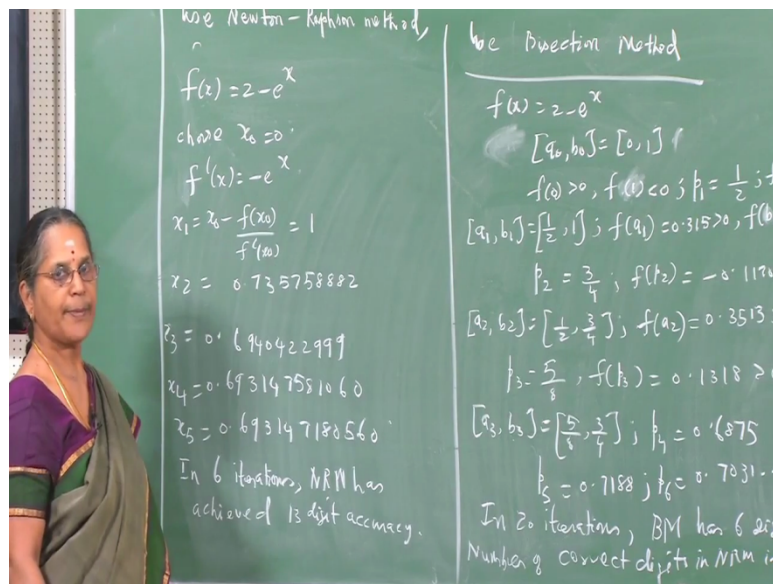 use Newton-Raphson method,
f(x) = 2 - e^x
chose x₀ = 0.
f'(x) = -e^x
x₁ = x₀ - f(x₀)/f'(x₀) = 1
x₂ = 0.735758882
x₃ = 0.6940422999
x₄ = 0.693147581060
x₅ = 0.693147180560
In 6 iterations, NRM has
achieved 13 digit accuracy.
Use Bisection Method
f(x) = 2 - e^x
[a₀, b₀] = [0, 1]
f(0) > 0, f(1) < 0 ; p₁ = 1/2 ;
[a₁, b₁] = [1/2, 1] ; f(a₁) = 0.315 > 0, f(b
p₂ = 3/4 ; f(p₂) = -0.1170
[a₂, b₂] = [1/2, 3/4] ; f(a₂) = 0.3513
p₃ = 5/8, f(p₃) = 0.1318 >
[a₃, b₃] = [5/8, 3/4] ; p₄ = 0.6875
p₅ = 0.7188 ; p₆ = 0.7031
In 20 iterations, BM has 6
Number of correct digits in NRM